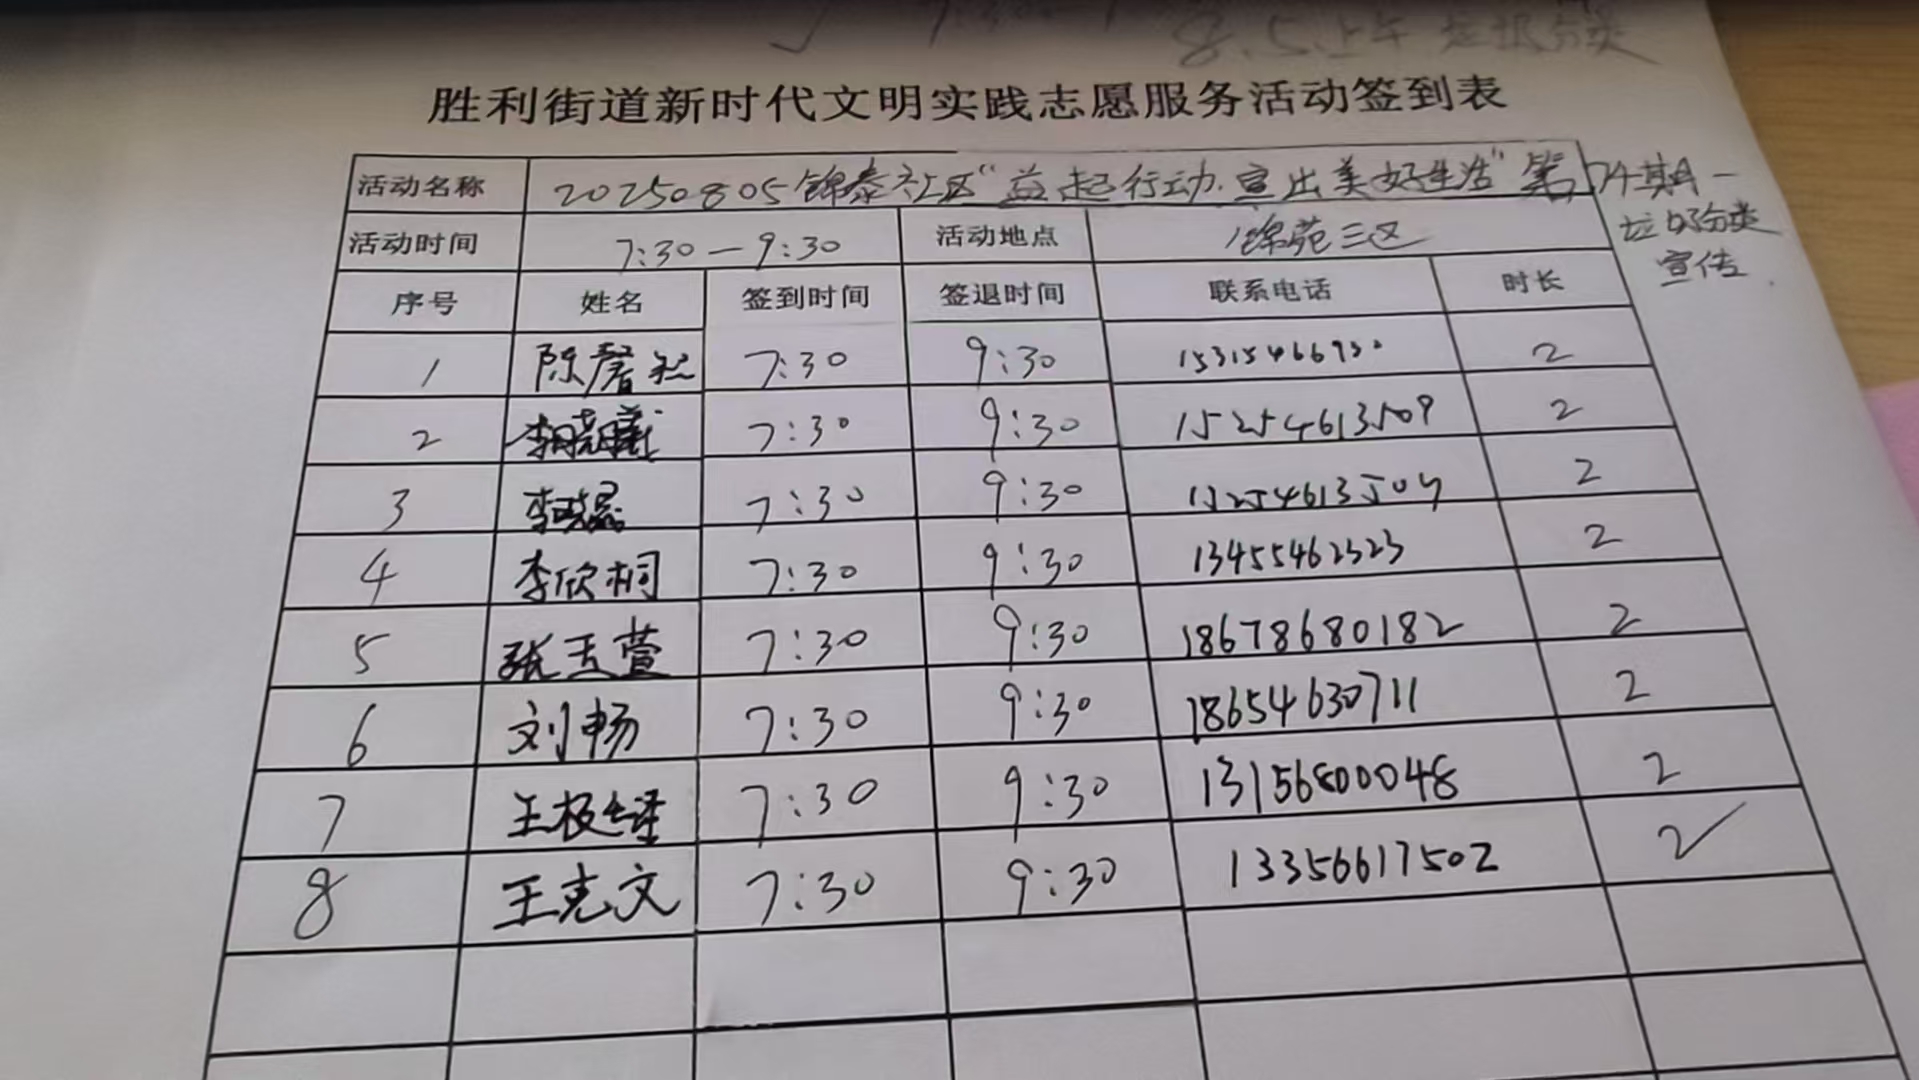 8.5上午 垃圾分类
胜利街道新时代文明实践志愿服务活动签到表
活动名称 20250805锦泰社区“益起行动.宣出美好生活”第74期A-
垃圾分类
宣传
活动时间 7:30—9:30 活动地点 锦苑三区
序号 姓名 签到时间 签退时间 联系电话 时长
1 陈 7:30 9:30 2
2 李晓曦 7:30 9:30 15254613509 2
3 李晓磊 7:30 9:30 15254613509 2
4 李欣桐 7:30 9:30 13455462323 2
5 张玉萱 7:30 9:30 18678680182 2
6 刘畅 7:30 9:30 18654630711 2
7 王 7:30 9:30 13156800048 2
8 王克文 7:30 9:30 13356617502 2